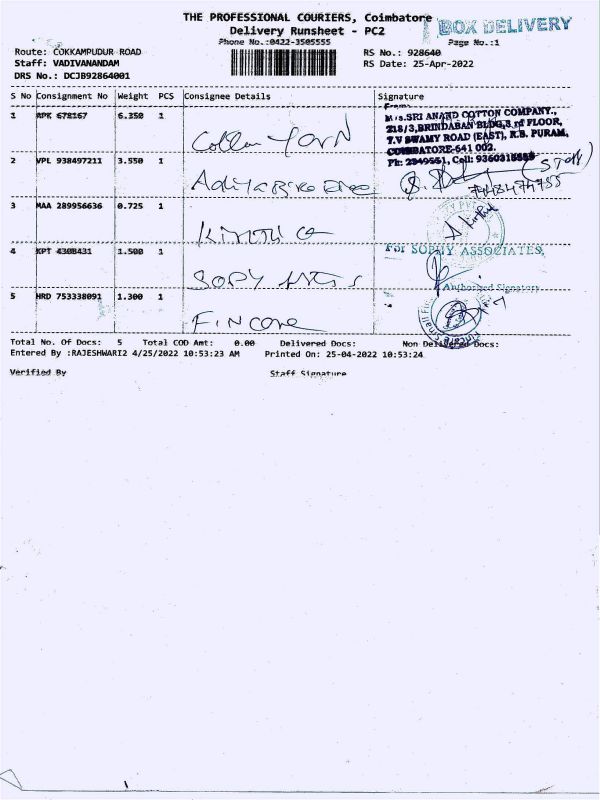 THE PROFESSIONAL COURIERS, Coimbatore
BOX DELIVERY
Delivery Runsheet - PC2
Phone No.:0422-3505555
Page No.:1
Route: COKKAMPUDUR ROAD
RS No.: 928640
Staff: VADIVANANDAM
RS Date: 25-Apr-2022
DRS No.: DCJB92864001
S No Consignment No Weight PCS Consignee Details Signature
1 APK 678167 6.350 1
Cotton YARN
M/s.SRI ANAND COTTON COMPANY.,
218/3,BRINDABAN BLDG,3 rd FLOOR,
T.V SWAMY ROAD (EAST), R.S. PURAM,
COIMBATORE-641 002.
2 VPL 938497211 3.550 1
Aditya Birla
3 MAA 289956636 0.725 1
4 KPT 4308431 1.500 1
For SOPHY ASSOCIATES,
SOPY
Authorized Signatory
5 HRD 753338091 1.300 1
Fincare
Total No. Of Docs: 5 Total COD Amt: 0.00 Delivered Docs: Non Delivered Docs:
Entered By :RAJESHWARI2 4/25/2022 10:53:23 AM Printed On: 25-04-2022 10:53:24
Verified By Staff Signature